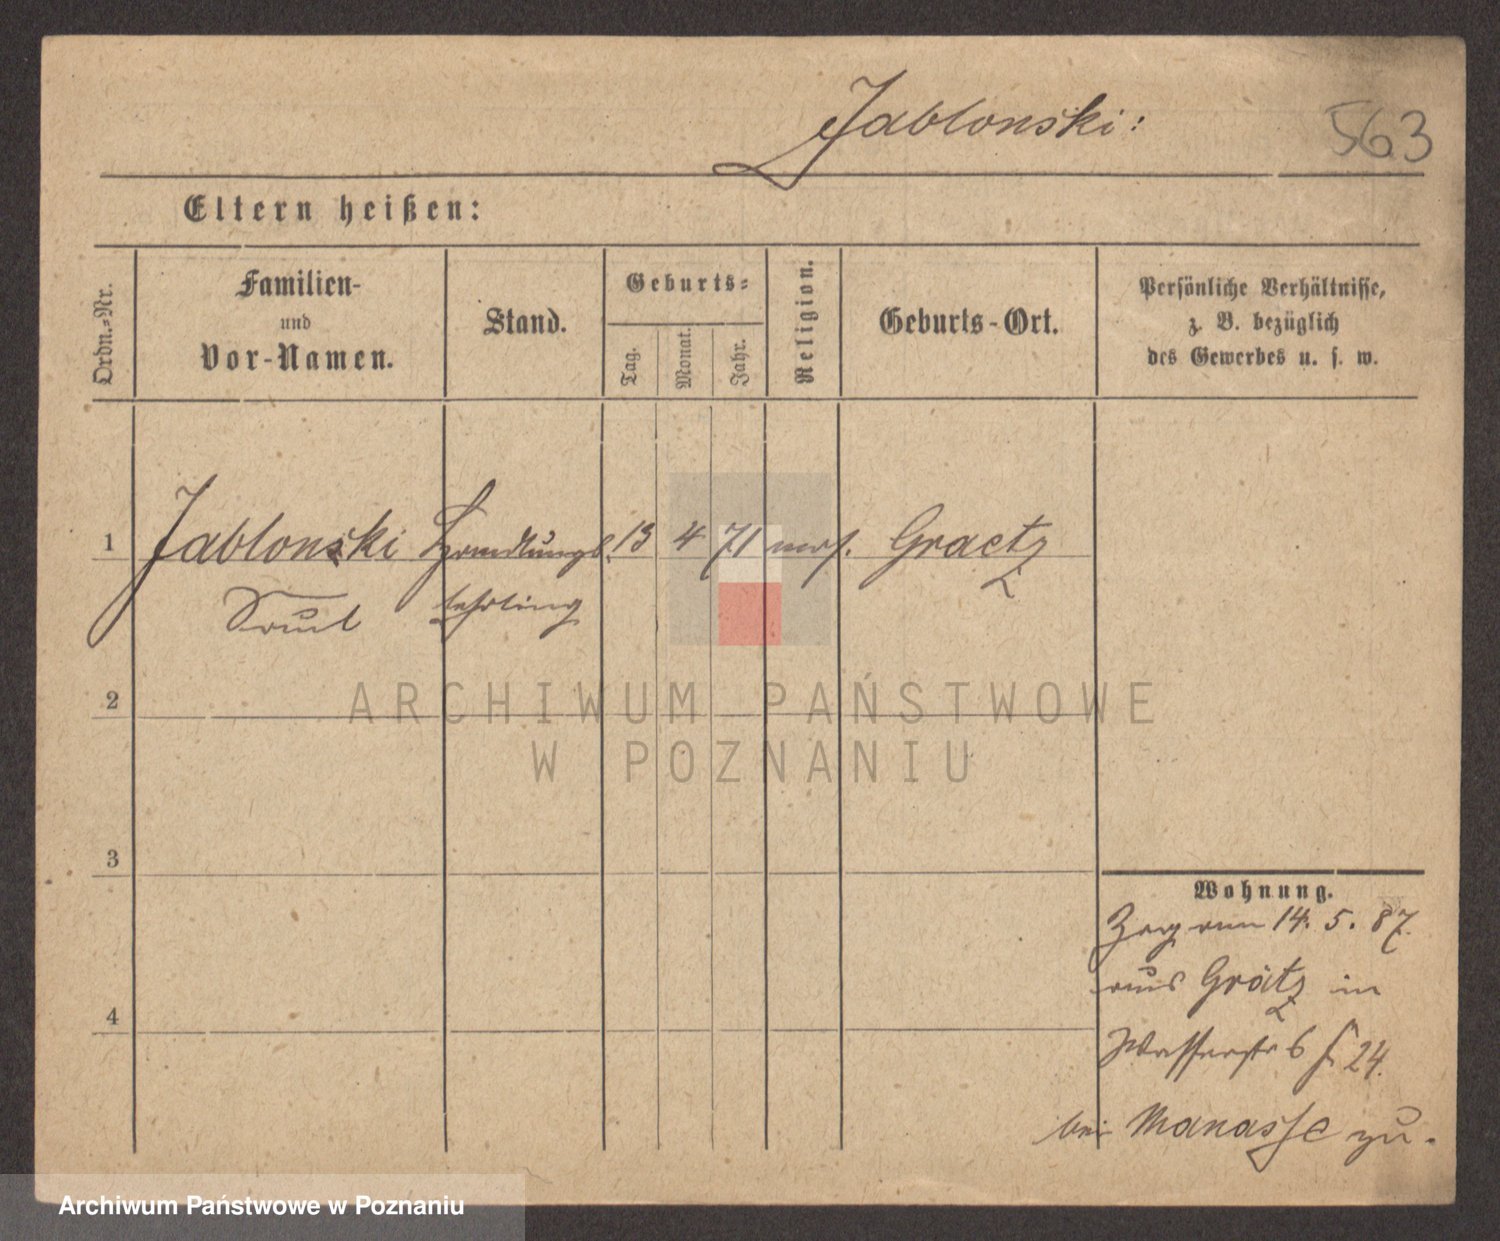 Jablonski:
563
Eltern heißen:
Ordn.-Nr.
Familien-
und
Vor-Namen.
Stand.
Geburts-
Tag.
Monat.
Jahr.
Religion.
Geburts-Ort.
Persönliche Verhältnisse,
z. B. bezüglich
des Gewerbes u. s. w.
1
Jablonski
Handlungs
13
4
71
mos.
Graetz
lehrling
2
ARCHIWUM PAŃSTWOWE
W POZNANIU
3
Wohnung.
Zog am 14. 5. 87.
aus Grätz in
4
Wasserstr 6 24.
bei Manasse zu.
Archiwum Państwowe w Poznaniu